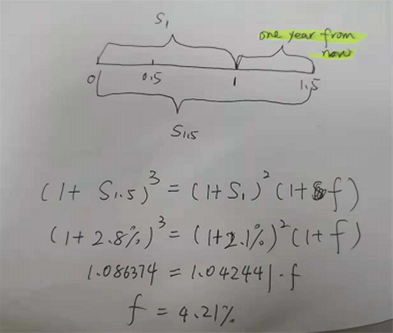 S₁
one year from
now
0 0.5 1 1.5
S₁.₅
(1+ S₁.₅)³ = (1+S₁)² (1+f)
(1+2.8%)³ = (1+2.1%)² (1+f)
1.086374 = 1.042441·f
f = 4.21%